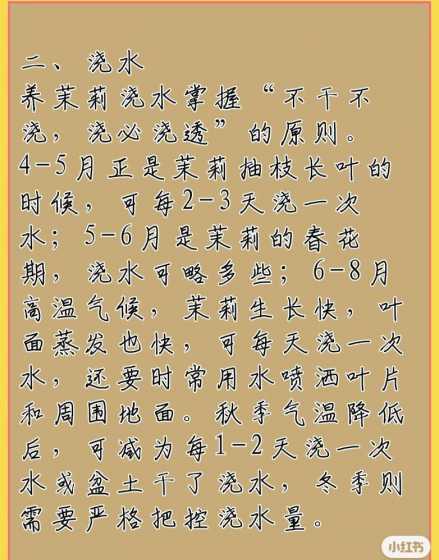 二、浇水
养茉莉浇水掌握“不干不
浇，浇必浇透”的原则。
4-5月正是茉莉抽枝长叶的
时候，可每2-3天浇一次
水；5-6月是茉莉的春花
期，浇水可略多些；6-8月
高温气候，茉莉生长快，叶
面蒸发也快，可每天浇一次
水，还要时常用水喷洒叶片
和周围地面。秋季气温降低
后，可减为每1-2天浇一次
水或盆土干了浇水，冬季则
需要严格把控浇水量。
小红书